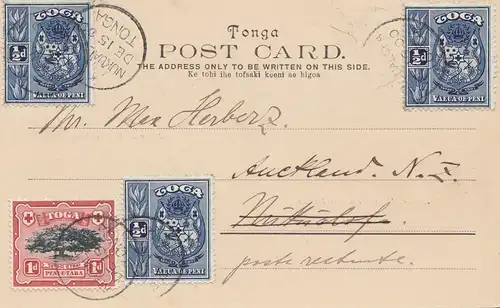 TOGA
½d
VAEUA OE PENI
NUKUALOFA
DE 15
TONGA
Tonga
POST CARD.
THE ADDRESS ONLY TO BE WRITTEN ON THIS SIDE.
Ke tohi ihe tofaaki koeni ae higoa
TOGA
½d
VAEUA OE PENI
Mr. Max Herberz
Auckland. N. Z.
Nukualofa
poste restante.
TOGA
1d 1d
PENI E TAHA
TOGA
½d
VAEUA OE PENI